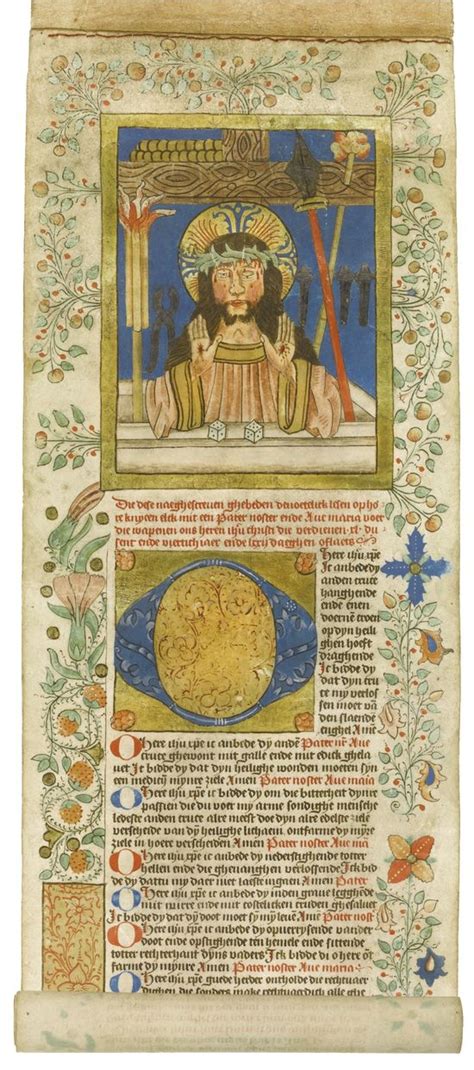 Die dese naeghescreven ghebeden devotelick lesen op ho
re knyeen elck met een Pater noster ende Aue maria voer
die wapenen ons heren ihu christi die verdienen xl. du
sent ende viertich iaer ende lxij daeghen oflaets
O here ihu xpe
Ic anbede dy
an den cruce
hanghende
ende enen
doernen croen
op dyn heili
ghen hoeft
draghende
Ic bidde dy
dat dyn cru
ce my verlos
sen moet van
den slaende
enghel Amē
O here ihu xpe ic anbede dy anden Pater nr Aue
cruce ghewont mit galle ende mit edick ghela
uet Ic bidde dy dat dyn heilighe wonden moeten syn
een medicij mijnre ziele Amen Pater noster Aue maria
O here ihu xpe ic bidde dy om die bitterheit dynre
passien die du voer my arme sondighe mensche
ledeste anden cruce alre meest doe dyn alre edelste ziele
verscheide van dyn heilighe lichaem ontfarme dy mynre
ziele in hoer verscheiden Amen Pater noster Aue ma
O here ihu xpe ic anbede dy nederstighende totter
hellen ende die ghevanghen verlossende Ic bid
de dy dattu my daer niet laetste ingaen Amen Pater
O here ihu xpe ic anbede dy inden graue legghende
mit mirre ende mit costelicken cruden ghesaluet
Ic bidde dy dat dy doot moet sy my leue Amē Pater nost
O here ihu xpe ic anbede dy op verrysende vander
doot ende opstighende ten hemele ende sittende
totter rechterhant dyns vaders Ic bidde di o here ont
farme dy mynre Amen Pater noster Aue maria
O here ihu xpe guede herder ontholde die rechtuaer
dighen die sonders make rechtuerdich alle ghe